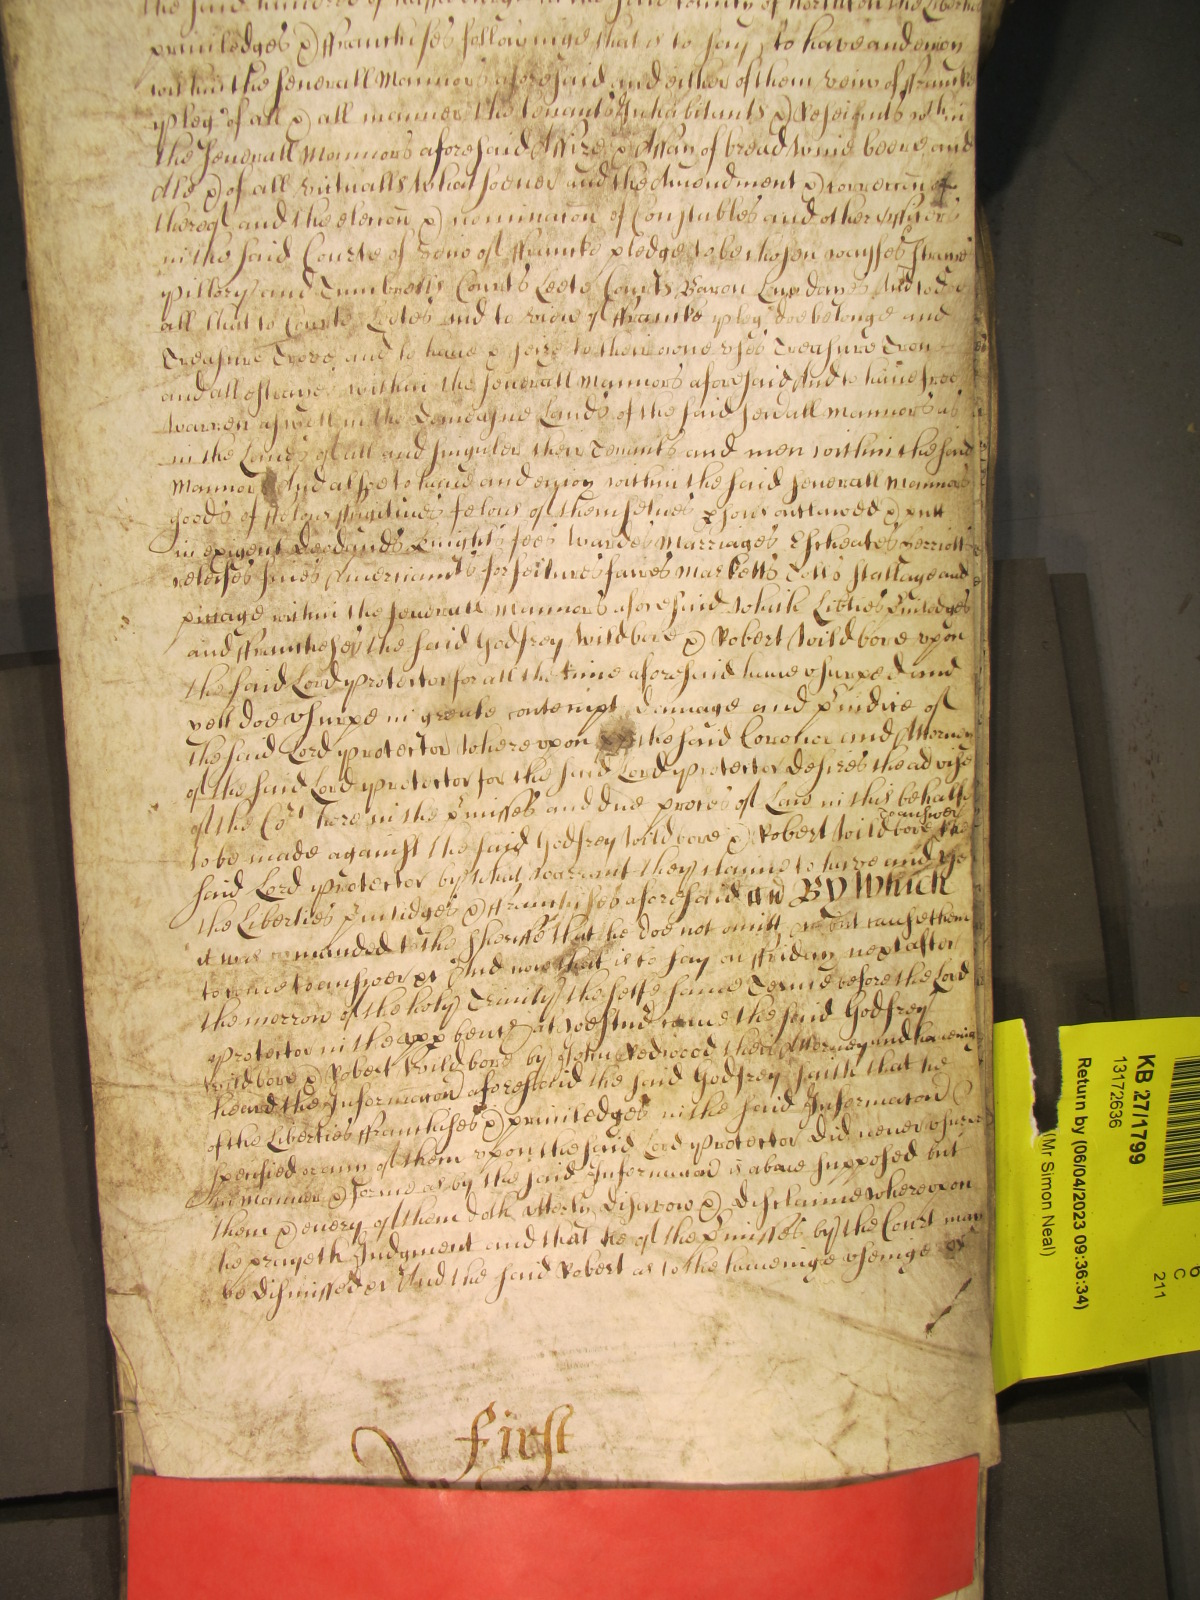 the said hundred of in the said County of North'ton the Liberties
priviledges & ffranchises followinge that is to say, to have and enioy
within the severall Mannors aforesaid and either of them veiw of ffranck
pleg' of all & all manner the tenants Inhabitants & Resciants w'thin
the severall Mannors aforesaid Assize & Assay of bread wine beere and
Ale & of all victualls whatsoever and the Amendment & correccon of
thereof and the eleccon & nominacon of Constables and other Officers
in the said Courte of veiw of ffrancke pledge to be chosen wayffes Strayes
pillery and Tumbrells Courts Leete Courts Baron Lawdayes And to doe
all that to Courts Leetes and to veiw of ffrancke pleg' doe belonge and
Treasure Trove and to have & seize to their owne vses Treasure Trove
and all estrayes within the severall Mannors aforesaid And to have free
warren aswell in the Demeasne Lands of the said sevrall Mannors as
in the Lands of all and singuler their Tenants and men within the said
Mannors And alsoe to have and enioy within the said severall Mannors
goods of ffelons ffugitives felons of themselves psons outlawed & putt
in exigent Deodands Knights fees Wardes Marriages Escheates herriotts
releises fines Amerciam'ts forfeitures faires Marketts Tolls Stallage and
piccage within the severall Mannors aforesaid which Lib'ties Priviledges
and ffranchises the said Godfrey Wildbore & Robert Wildbore vpon
the said Lord Protector for all the time aforesaid have vsurped and
yett doe vsurpe in greate contempt, damage and p'iudice of
the said Lord Protector, Wherevpon the said Coronor and Attorney
of the said Lord Protector for the said Lord Protector desires the advise
of the Co't here in the p'misses and due proces of Law in this behalfe
to be made against the said Godfrey Wildbore & Robert Wildbore to answer the
said Lord Protector by what warrant they clayme to have and vse
the Liberties Priviledges & ffranchises aforesaid BY Which
it was comanded to the Sheriffe that he doe not omitt &c but cause them
to come to answer &c And now that is to say on ffriday next after
the morrow of the holy Trinity the selfe same Terme before the Lord
Protector in the vpp bench at Westm' came the said Godfrey
Wildbore & Robert Wildbore by John Redwood their Attorney and haveinge
heard the Informacon aforesaid the said Godfrey saith that he
of the Liberties ffranchises & priviledges in the said Informacon
specified or any of them vpon the said Lord Protector did never vsurpe
in manner & forme as by the said Informacon is above supposed but
them & every of them doth vtterly disavow & disclaime wherevpon
he prayeth Judgment and that he of the p'misses by the Court may
be dismissed &c And the said Robert as to the haveinge vseinge of
First
KB 27/1799
13172636
Return by (06/04/2023 09:36:34)
(Mr Simon Neal)
6
C
211